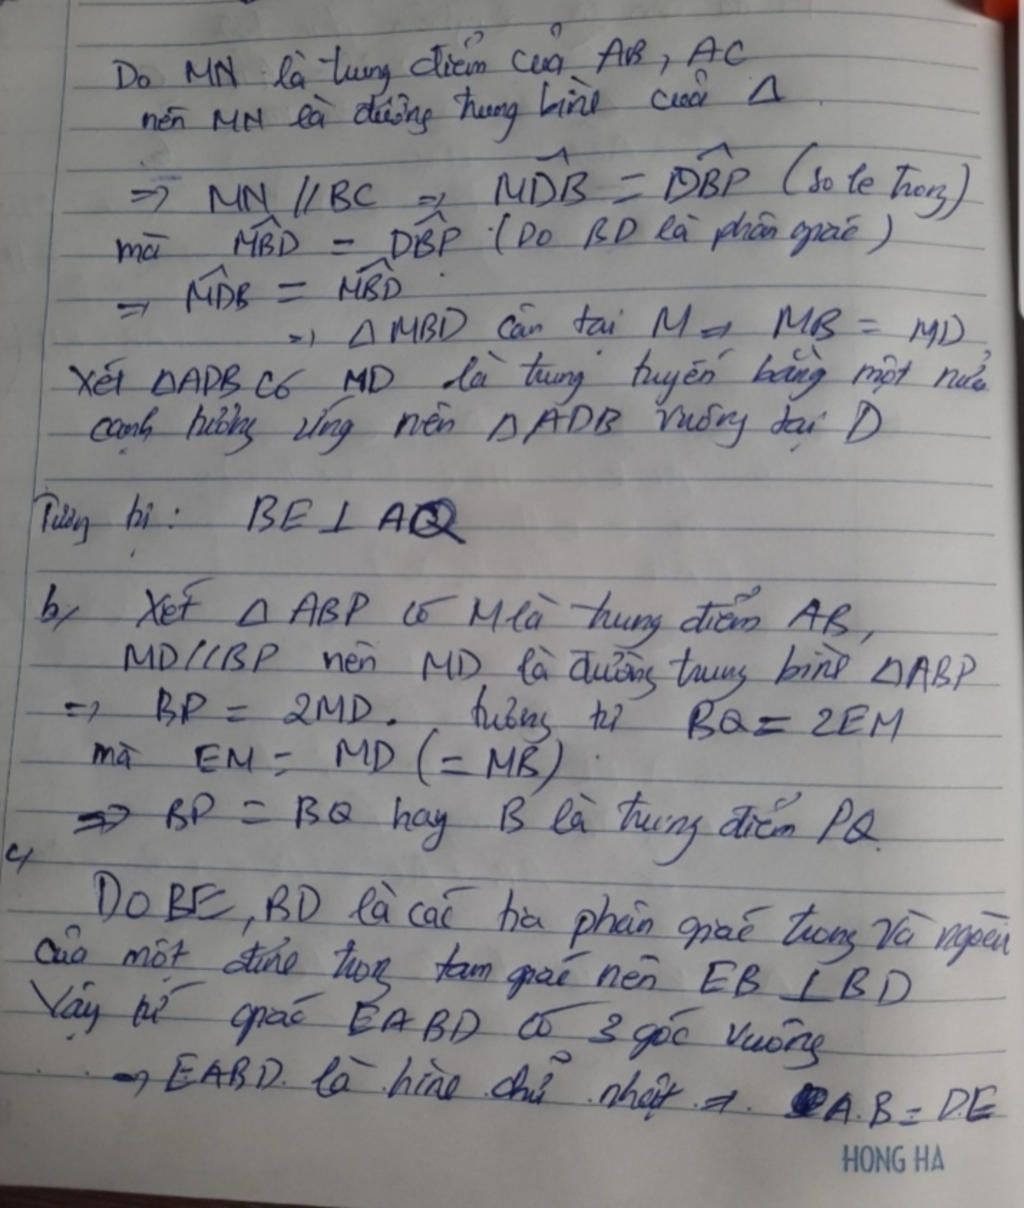 Do MN là trung điểm của AB, AC
nên MN là đường trung bình của Δ
=> MN // BC => \widehat{MDB} = \widehat{DBP} (so le trong)
mà \widehat{MBD} = \widehat{DBP} (Do BD là phân giác)
=> \widehat{MDB} = \widehat{MBD}
=> Δ MBD cân tại M => MB = MD
Xét ΔADB có MD là trung tuyến bằng một nửa
cạnh tương ứng nên Δ ADB vuông tại D
Tương tự: BE ⊥ AQ
b, Xét Δ ABP có M là trung điểm AB,
MD // BP nên MD là đường trung bình ΔABP
=> BP = 2MD. tương tự BQ = 2EM
mà EM = MD (= MB)
=> BP = BQ hay B là trung điểm PQ.
c,
Do BE, BD là các tia phân giác trong và ngoài
của một đỉnh trong tam giác nên EB ⊥ BD
Vậy tứ giác EABD có 3 góc vuông
=> EABD là hình chữ nhật => AB = DE
HONG HA